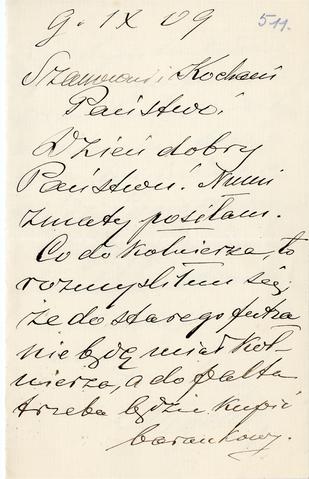 9. IX 09
511.
Szanowni i Kochani
Państwo!
Dzień dobry
Państwu!
posełam.
Co do kołnierza, to
rozmyśliłem się,
że do starego futra
nie będę miał koł-
nierza, a do palta
trzeba będzie kupić
barankowy.